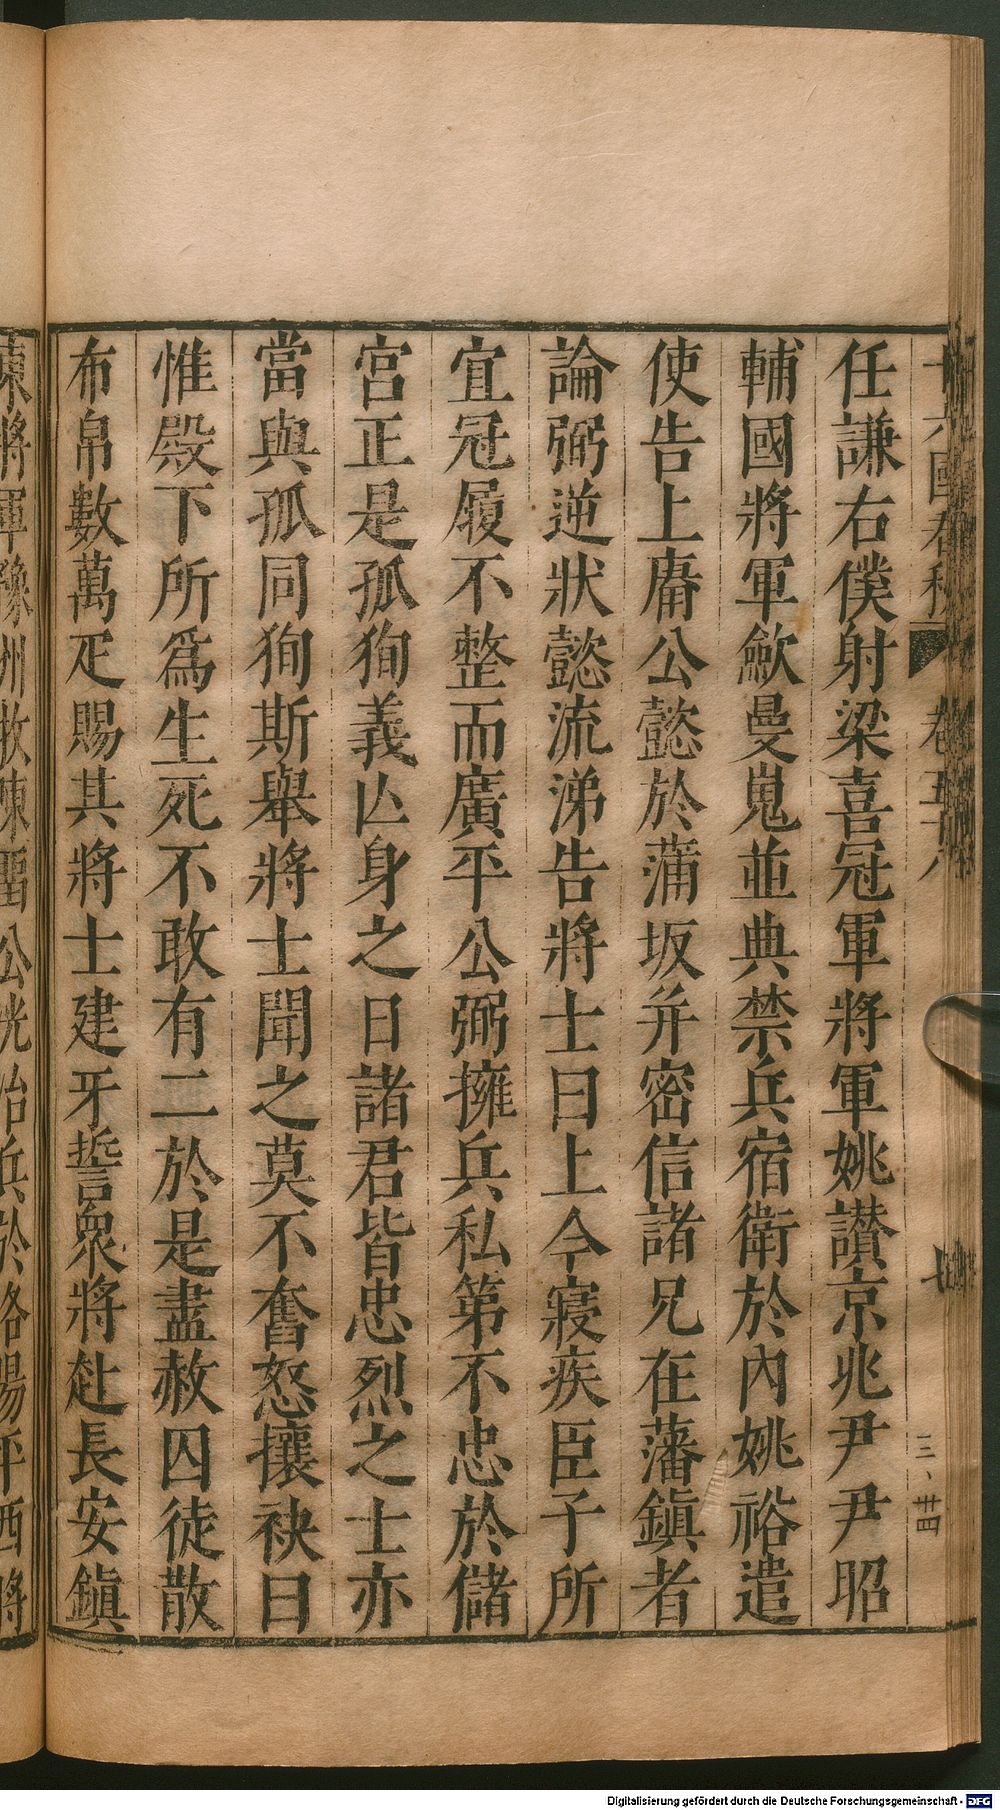 任謙右僕射梁喜冠軍將軍姚讃京兆尹尹昭
輔國將軍歛曼嵬並典禁兵宿衛於內姚裕遣
使告上庸公懿於蒲坂并密信諸兄在藩鎮者
論弼逆狀懿流涕告將士曰上今寢疾臣子所
宜冠履不整而廣平公弼擁兵私第不忠於儲
宮正是孤狥義亾身之日諸君皆忠烈之士亦
當與孤同狥斯舉將士聞之莫不奮怒攘袂曰
惟殿下所爲生死不敢有二於是盡赦囚徒散
布帛數萬疋賜其將士建牙誓衆將赴長安鎮
東將軍豫州牧陳留公洸治兵於洛陽平西將
三、廿四
Digitalisierung gefördert durch die Deutsche Forschungsgemeinschaft - DFG